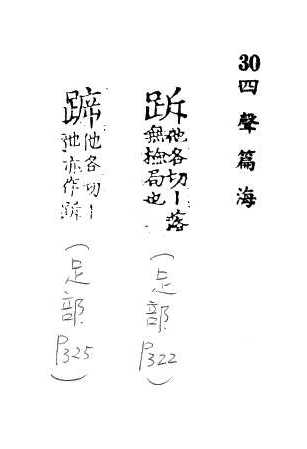 30四聲篇海
跅他各切丨落
無撿局也
(足部
P322)
䠠他各切丨
弛亦作跅
(足部
P325)